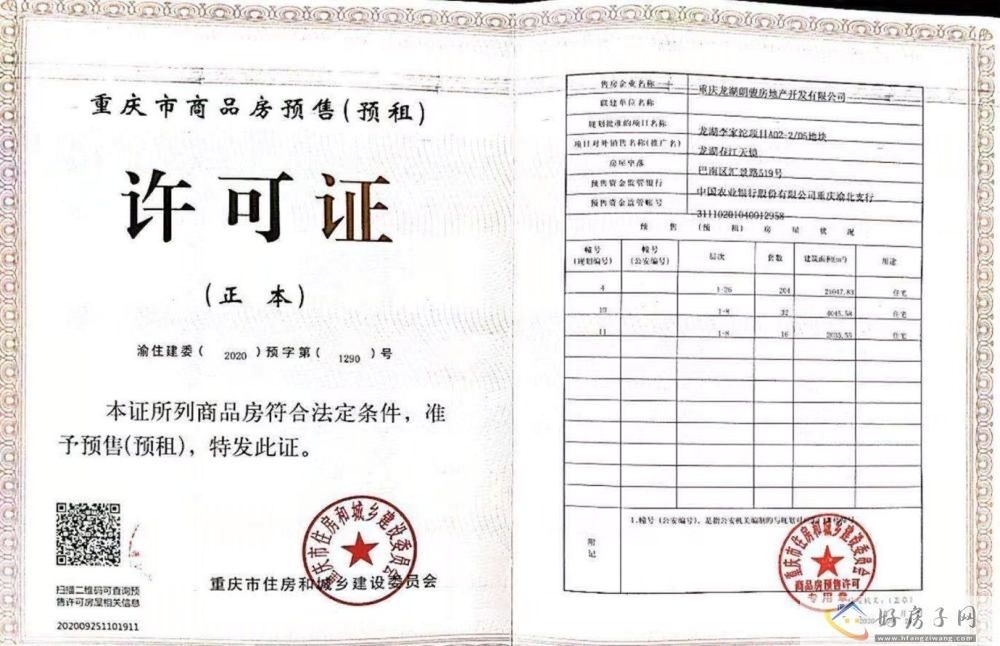 重庆市商品房预售(预租)
许可证
(正本)
渝住建委(2020)预字第(1290)号
本证所列商品房符合法定条件,准
予预售(预租),特发此证。
重庆市住房和城乡建设委员会
重庆市住房和城乡建设委员会
扫描二维码可查询预
售许可房屋相关信息
202009251101911
售房企业名称 重庆龙湖朗骏房地产开发有限公司
联建单位名称
规划批准的项目名称 龙湖李家沱项目A02-2/06地块
项目对外销售名称(推广名) 龙湖春江天镜
房屋坐落 巴南区汇景路519号
预售资金监管银行 中国农业银行股份有限公司重庆渝北支行
预售资金监管帐号 31110201040012958
预售(预租)房屋状况
幢号(规划编号) 幢号(公安编号) 层次 套数 建筑面积(m²) 用途
4 1-26 204 21647.83 住宅
10 1-8 32 4045.58 住宅
11 1-8 16 住宅
附记
1.幢号(公安编号),是指公安机关编制的与规划
重庆市住房和城乡建设委员会
商品房预售许可
专用章
发机关:(盖章)
好房子网
www.hfangziwang.com